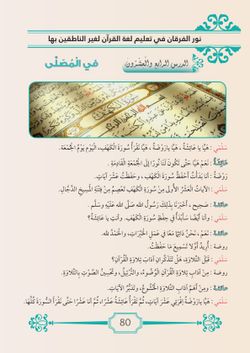 نور الفرقان في تعليم لغة القرآن لغير الناطقين بها
الدرس الرابع والعشرون
في الْمُصَلَّى
سَلْمَى : هَيَّا يا عائِشَةُ، هَيَّا يارَوْضَةُ، هَيَّا نَقْرَأُ سورَةَ الْكَهْفِ، اليَوْمَ يَوْمُ الْجُمُعَةِ.
عائِشَةُ : نَعَمْ هَيَّا حَتَّى تَكونَ لَنا نورًا إلى الْجُمُعَةِ القادِمَةِ.
رَوْضَةُ : أنا بَدَأْتُ أَحْفَظُ سورَةَ الْكَهْفِ، وحَفِظْتُ عَشْرَ آياتٍ.
سَلْمَى : الآياتُ العَشْرُ الأُولَى مِنْ سورَةِ الْكَهْفِ تَعْصِمُ مِنْ فِتْنَةِ الْمَسيحِ الدَّجَّالِ.
عائِشَةُ : صَحيح، أَخْبَرَنا بِذَلِكَ رَسولُ اللهِ صَلَّى اللهُ عَلَيْهِ وسَلَّمَ.
سَلْمَى : وأنا أَيْضًا سَأَبْدَأُ في حِفْظِ سورَةِ الْكَهْفِ. وأنْتِ يا عائِشَةُ؟
عائِشَةُ : نَعَمْ، نَحْنُ دائِمًا مَعًا في عَمَلِ الْخَيْراتِ، والْحَمْدُ للهِ.
روضة : أُريدُ أوَّلًا تَسْميعَ ما حَفِظْتُ.
سَلْمَى : قَبْلَ التِّلاوَةِ، هَلْ تَتَذَكَّرانِ آدابَ تِلاوَةِ القُرْآنِ؟
روضة : مِنْ آدابِ تِلاوَةِ القُرْآنِ الْوُضوءُ، والتَّرْتيلُ، وتَحْسينُ الصَّوْتِ بِالتِّلاوَةِ.
عائشة : ومِنْ أهَمِّ آدابِ التِّلاوَةِ الْخُشوعُ، وتَدَبُّرُ الآياتِ.
سَلْمَى : هَيَّا يا رَوْضَةُ اِقْرَئي عَشْرَ آياتٍ، ثُمَّ تَقْرَأُ عائِشَةُ عَشْرًا ثُمَّ أنا عَشْرًا حَتَّى نَقْرَأَ السُّورَةَ كُلَّها.
80